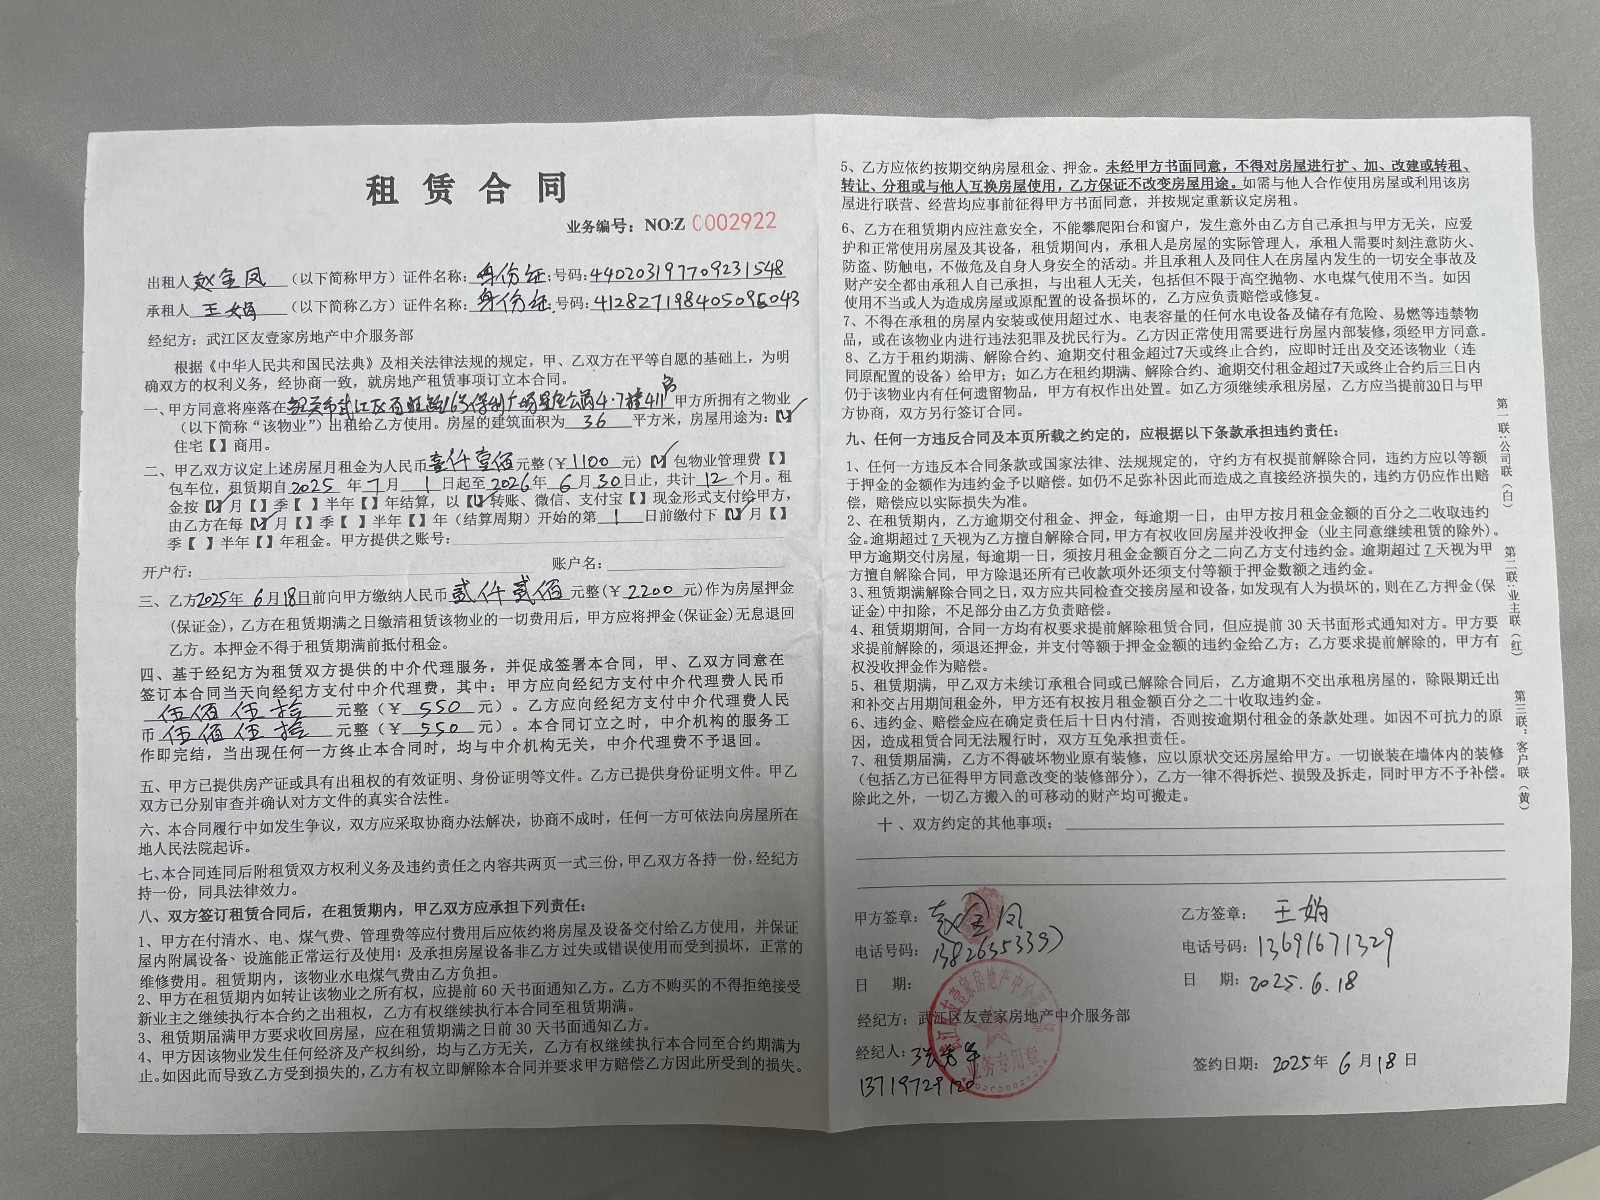 租 赁 合 同
业务编号：NO:Z 0002922
出租人 赵金凤 （以下简称甲方）证件名称：身份证：号码：440203197709231548
承租人 王娟 （以下简称乙方）证件名称：身份证：号码：
经纪方：武江区友壹家房地产中介服务部
根据《中华人民共和国民法典》及相关法律法规的规定，甲、乙双方在平等自愿的基础上，为明
确双方的权利义务，经协商一致，就房地产租赁事项订立本合同。
一、甲方同意将座落在韶关市武江区百旺路16号保利广场星仓公寓4·7幢411房 甲方所拥有之物业
（以下简称“该物业”）出租给乙方使用。房屋的建筑面积为 36 平方米，房屋用途为：【√】
住宅【 】商用。
二、甲乙双方议定上述房屋月租金为人民币壹仟壹佰元整(￥1100 元)【√】包物业管理费【 】
包车位，租赁期自2025 年 7 月 1 日起至 2026 年 6 月 30 日止，共计 12 个月。租
金按【√】月【 】季【 】半年【 】年结算，以【√】转账、微信、支付宝【 】现金形式支付给甲方，
由乙方在每【√】月【 】季【 】半年【 】年（结算周期）开始的第 1 日前缴付下【√】月【 】
季【 】半年【 】年租金。甲方提供之账号：
开户行： 账户名：
三、乙方2025年 6月18日前向甲方缴纳人民币 贰仟贰佰 元整(￥ 2200 元)作为房屋押金
(保证金)，乙方在租赁期满之日缴清租赁该物业的一切费用后，甲方应将押金(保证金)无息退回
乙方。本押金不得于租赁期满前抵付租金。
四、基于经纪方为租赁双方提供的中介代理服务，并促成签署本合同，甲、乙双方同意在
签订本合同当天向经纪方支付中介代理费，其中：甲方应向经纪方支付中介代理费人民币
伍佰伍拾 元整（￥ 550 元）。乙方应向经纪方支付中介代理费人民
币 伍佰伍拾 元整（￥ 550 元）。本合同订立之时，中介机构的服务工
作即完结，当出现任何一方终止本合同时，均与中介机构无关，中介代理费不予退回。
五、甲方已提供房产证或具有出租权的有效证明、身份证明等文件。乙方已提供身份证明文件。甲乙
双方已分别审查并确认对方文件的真实合法性。
六、本合同履行中如发生争议，双方应采取协商办法解决，协商不成时，任何一方可依法向房屋所在
地人民法院起诉。
七、本合同连同后附租赁双方权利义务及违约责任之内容共两页一式三份，甲乙双方各持一份，经纪方
持一份，同具法律效力。
八、双方签订租赁合同后，在租赁期内，甲乙双方应承担下列责任：
1、甲方在付清水、电、煤气费、管理费等应付费用后应依约将房屋及设备交付给乙方使用，并保证
屋内附属设备、设施能正常运行及使用；及承担房屋设备非乙方过失或错误使用而受到损坏，正常的
维修费用。租赁期内，该物业水电煤气费由乙方负担。
2、甲方在租赁期内如转让该物业之所有权，应提前 60 天书面通知乙方。乙方不购买的不得拒绝接受
新业主之继续执行本合约之出租权，乙方有权继续执行本合同至租赁期满。
3、租赁期届满甲方要求收回房屋，应在租赁期满之日前 30 天书面通知乙方。
4、甲方因该物业发生任何经济及产权纠纷，均与乙方无关，乙方有权继续执行本合同至合约期满为
止。如因此而导致乙方受到损失的，乙方有权立即解除本合同并要求甲方赔偿乙方因此所受到的损失。
5、乙方应依约按期交纳房屋租金、押金。未经甲方书面同意，不得对房屋进行扩、加、改建或转租、
转让、分租或与他人互换房屋使用，乙方保证不改变房屋用途。如需与他人合作使用房屋或利用该房
屋进行联营、经营均应事前征得甲方书面同意，并按规定重新议定房租。
6、乙方在租赁期内应注意安全，不能攀爬阳台和窗户，发生意外由乙方自己承担与甲方无关，应爱
护和正常使用房屋及其设备，租赁期间内，承租人是房屋的实际管理人，承租人需要时刻注意防火、
防盗、防触电，不做危及自身人身安全的活动。并且承租人及同住人在房屋内发生的一切安全事故及
财产安全都由承租人自己承担，与出租人无关，包括但不限于高空抛物、水电煤气使用不当。如因
使用不当或人为造成房屋或原配置的设备损坏的，乙方应负责赔偿或修复。
7、不得在承租的房屋内安装或使用超过水、电表容量的任何水电设备及储存有危险、易燃等违禁物
品，或在该物业内进行违法犯罪及扰民行为。乙方因正常使用需要进行房屋内部装修，须经甲方同意。
8、乙方于租约期满、解除合约、逾期交付租金超过7天或终止合约，应即时迁出及交还该物业（连
同原配置的设备）给甲方；如乙方在租约期满、解除合约、逾期交付租金超过7天或终止合约后三日内
仍于该物业内有任何遗留物品，甲方有权作出处置。如乙方须继续承租房屋，乙方应当提前30日与甲
方协商，双方另行签订合同。
九、任何一方违反合同及本页所载之约定的，应根据以下条款承担违约责任：
1、任何一方违反本合同条款或国家法律、法规规定的，守约方有权提前解除合同，违约方应以等额
于押金的金额作为违约金予以赔偿。如仍不足弥补因此而造成之直接经济损失的，违约方仍应作出赔
偿，赔偿应以实际损失为准。
2、在租赁期内，乙方逾期交付租金、押金，每逾期一日，由甲方按月租金金额的百分之二收取违约
金。逾期超过 7 天视为乙方擅自解除合同，甲方有权收回房屋并没收押金（业主同意继续租赁的除外）。
甲方逾期交付房屋，每逾期一日，须按月租金金额百分之二向乙方支付违约金。逾期超过 7 天视为甲
方擅自解除合同，甲方除退还所有已收款项外还须支付等额于押金数额之违约金。
3、租赁期满解除合同之日，双方应共同检查交接房屋和设备，如发现有人为损坏的，则在乙方押金(保
证金)中扣除，不足部分由乙方负责赔偿。
4、租赁期期间，合同一方均有权要求提前解除租赁合同，但应提前 30 天书面形式通知对方。甲方要
求提前解除的，须退还押金，并支付等额于押金金额的违约金给乙方；乙方要求提前解除的，甲方有
权没收押金作为赔偿。
5、租赁期满，甲乙双方未续订承租合同或已解除合同后，乙方逾期不交出承租房屋的，除限期迁出
和补交占用期间租金外，甲方还有权按月租金额百分之二十收取违约金。
6、违约金、赔偿金应在确定责任后十日内付清，否则按逾期付租金的条款处理。如因不可抗力的原
因，造成租赁合同无法履行时，双方互免承担责任。
7、租赁期届满，乙方不得破坏物业原有装修，应以原状交还房屋给甲方。一切嵌装在墙体内的装修
（包括乙方已征得甲方同意改变的装修部分），乙方一律不得拆烂、损毁及拆走，同时甲方不予补偿。
除此之外，一切乙方搬入的可移动的财产均可搬走。
十 、双方约定的其他事项：
甲方签章：赵金凤 乙方签章： 王娟
电话号码：13826353397 电话号码：13691671329
日 期： 日 期：2025.6.18
经纪方：武江区友壹家房地产中介服务部
经纪人：
13719729120
签约日期：2025年 6 月18 日
第一联：公司联（白）
第二联：业主联（红）
第三联：客户联（黄）
业务专用章